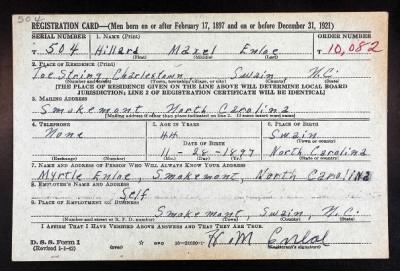 504
REGISTRATION CARD—(Men born on or after February 17, 1897 and on or before December 31, 1921)
SERIAL NUMBER 1. NAME (Print) ORDER NUMBER
T 504 Hillard Mazel Enloe T 10,082
(First) (Middle) (Last)
2. PLACE OF RESIDENCE (Print)
Toe String Charlestown, Swain N.C.
(Number and street) (Town, township, village, or city) (County) (State)
[THE PLACE OF RESIDENCE GIVEN ON THE LINE ABOVE WILL DETERMINE LOCAL BOARD
JURISDICTION; LINE 2 OF REGISTRATION CERTIFICATE WILL BE IDENTICAL]
3. MAILING ADDRESS
Smokemont, North Carolina
[Mailing address if other than place indicated on line 2. If same insert word same]
4. TELEPHONE 5. AGE IN YEARS 6. PLACE OF BIRTH
None 44 Swain
DATE OF BIRTH (Town or county)
11 - 28 - 1897 North Carolina
(Exchange) (Number) (Mo.) (Day) (Yr.) (State or country)
7. NAME AND ADDRESS OF PERSON WHO WILL ALWAYS KNOW YOUR ADDRESS
Myrtle Enloe, Smokemont, North Carolina
8. EMPLOYER'S NAME AND ADDRESS
Self
9. PLACE OF EMPLOYMENT OR BUSINESS
Smokemont, Swain, N.C.
(Number and street or R. F. D. number) (Town) (County) (State)
I AFFIRM THAT I HAVE VERIFIED ABOVE ANSWERS AND THAT THEY ARE TRUE.
D. S. S. Form 1
(Revised 1-1-42) GPO 16—21630-1 H M Enloe
(Registrant's signature)